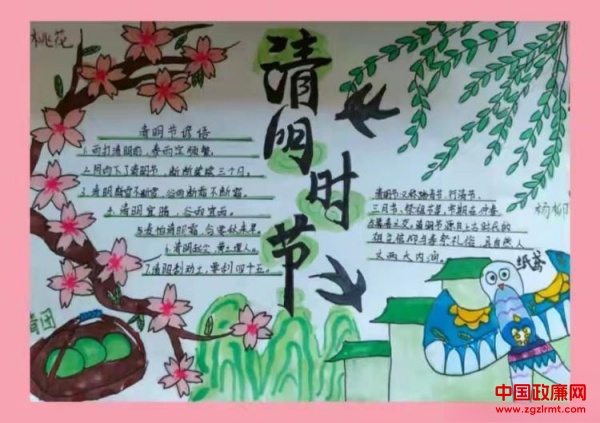 桃花
清明时节
清明节谚语
1.雨打清明前,春雨定频繁。
2.阴雨下了清明节,断断续续三个月。
3.清明断雪不断雪,谷雨断霜不断霜。
4.清明宜晴,谷雨宜雨。
5.麦怕清明霜,谷要秋来旱。
6.清明起尘,黄土埋人。
7.清明刮动土,要刮四十五。
清明节,又称踏青节、行清节、
三月节、祭祖节等,节期在仲春
与暮春之交。清明节源自上古时代的
祖先信仰与春祭礼俗,兼自然人
文两大内涵
杨柳
纸鸢
青团
中国政廉网
www.zgzlrmt.com